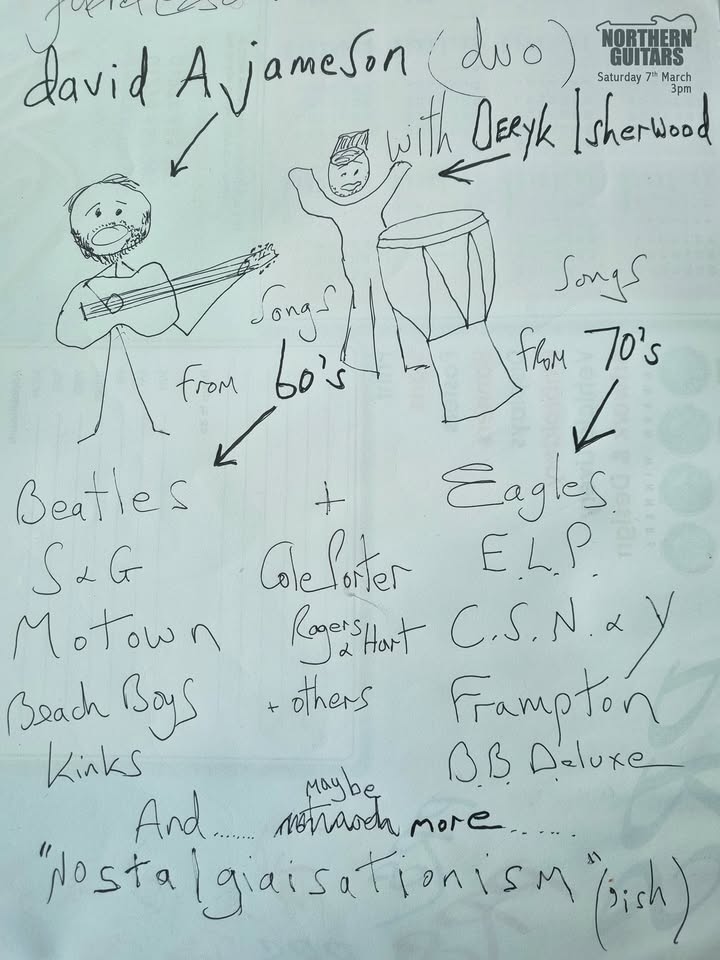 NORTHERN
GUITARS
Saturday 7th March
3pm
david A jameson (duo)
with DERYK Isherwood
Songs
from 60's
Songs
from 70's
Beatles + Eagles
S & G Cole Porter E.L.P.
Motown Rogers & Hart C.S.N. & Y
Beach Boys + others Frampton
Kinks B.B. Deluxe
And....... maybe more.......
"Nostalgiaisationism" (ish)